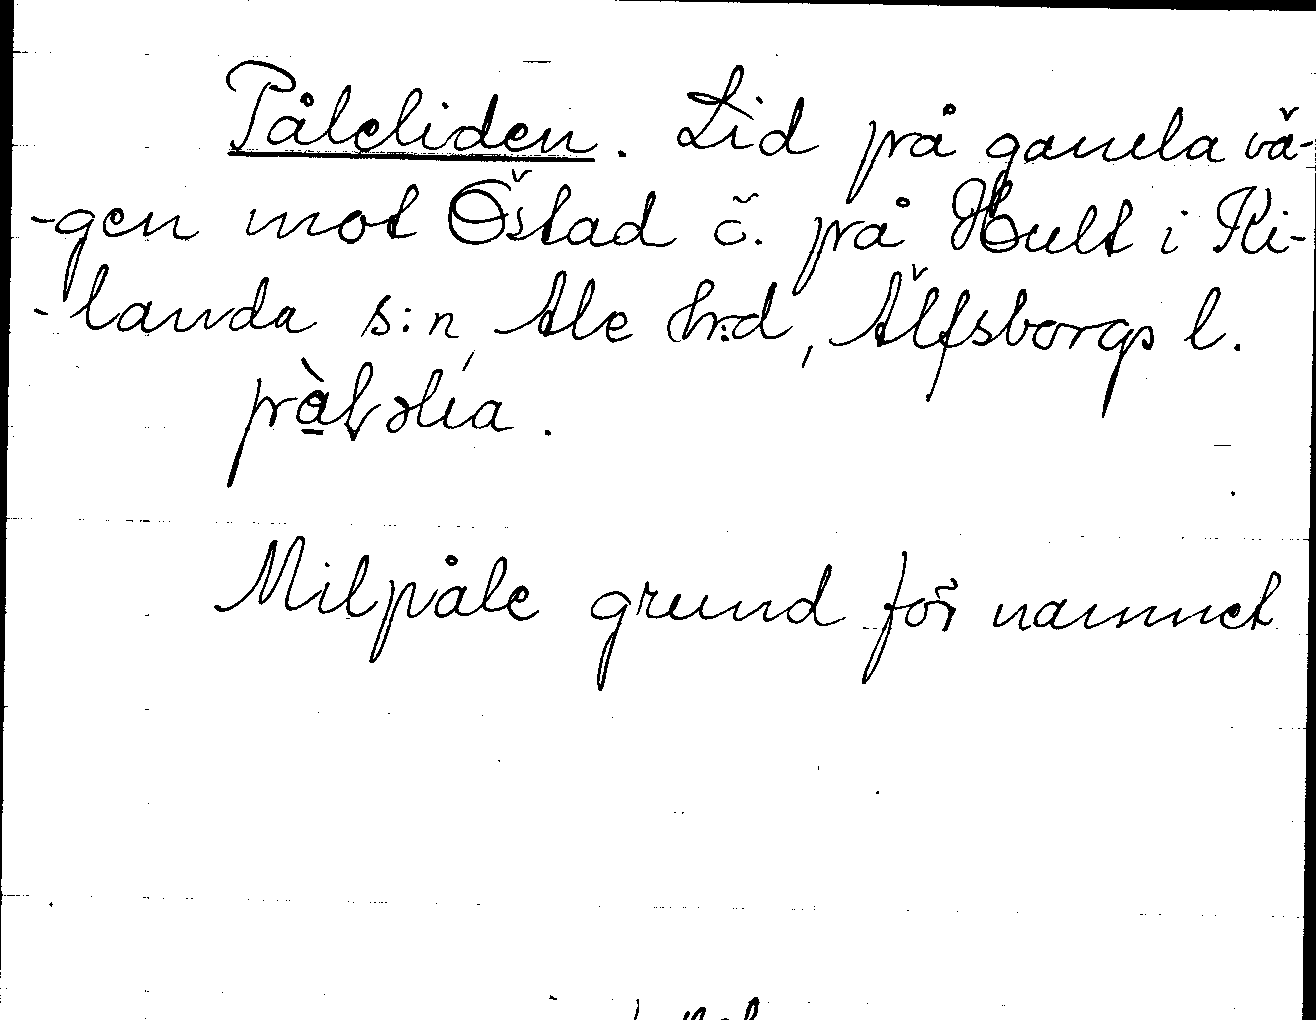 Påleliden. Lid på gamla vä-
-gen mot Östad ö. på Hult i Ki-
-landa s:n, Ale h:d, Älfsborgs l.
Milpåle grund för namnet